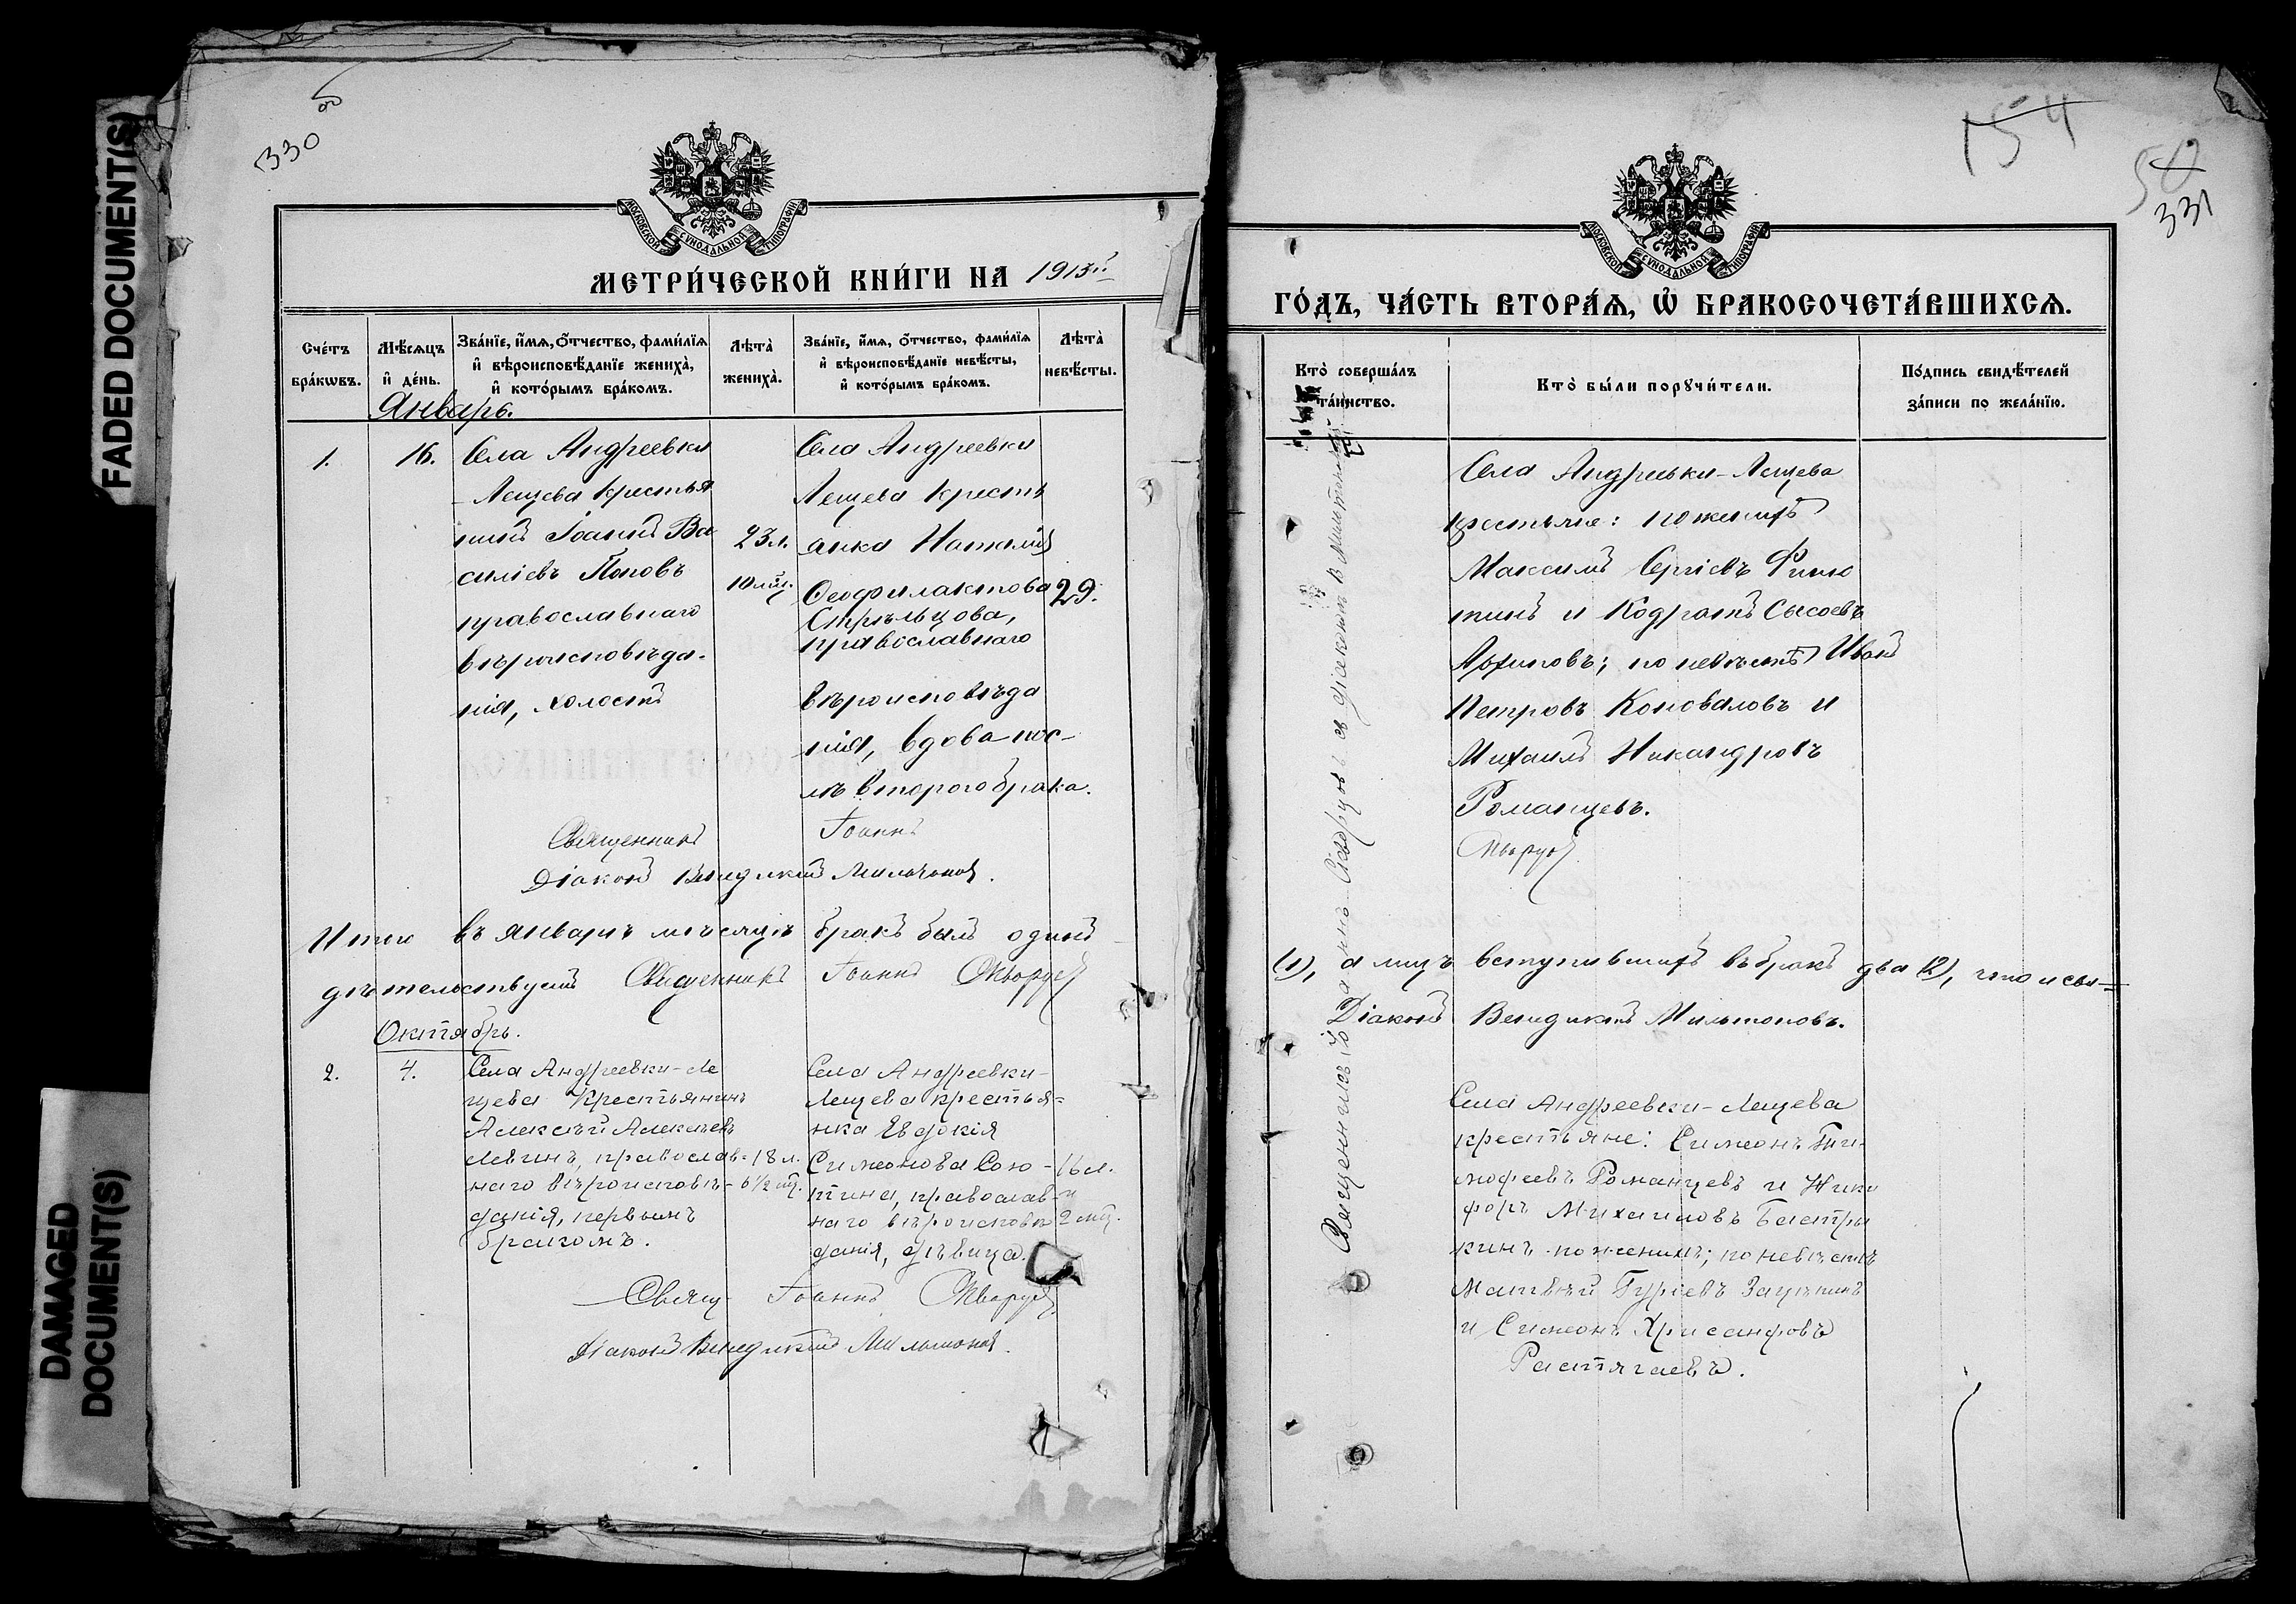 FADED DOCUMENT(S)
DAMAGED
DOCUMENT(S)
330
об
МОСКОВСКОЙ СѴНОДАЛЬНОЙ ТИПОГРАФІИ
МЕТРИ́ЧЕСКОЙ КНИ́ГИ НА 1913й
Сче́тъ
бра́кωвъ.
Мѣ́сѧцъ
и҆ де́нь.
Зва́нїе, и҆́мѧ, ѻ҆́тчество, фами́лїѧ
и҆ вѣроисповѣ́данїе жениха̀,
и҆ кото́рымъ бра́комъ.
Лѣта̀
жениха̀.
Зва́нїе, и҆́мѧ, ѻ҆́тчество, фами́лїѧ
и҆ вѣроисповѣ́данїе невѣ́сты,
и҆ кото́рымъ бра́комъ.
Лѣта̀
невѣ́сты.
Январь.
1.
16.
Села Андреевки
-Лещева крестья
нинъ Іоаннъ Ва
силіевъ Поповъ
православнаго
вѣроисповѣда-
нія, холостъ
23 л.
10 мц.
Села Андреевки
Лещева кресть
янка Наталія
Ѳеофилактова
Стрѣльцова,
православнаго
вѣроисповѣда
нія, вдова пос-
лѣ второго брака.
29.
Священникъ Іоаннъ
Діаконъ Венедиктъ Мильтоновъ.
Итого въ январѣ мѣсяцѣ бракъ былъ одинъ
дѣтельствуютъ Священникъ Іоаннъ Скворцовъ
Октябрь.
2.
4.
Села Андреевки-Ле
щева крестьянинъ
Алексѣй Алексѣевъ
Левинъ, православ-
наго вѣроисповѣ-
данія, первымъ
бракомъ.
18 л.
6 1/2 мц.
Села Андреевки-
Лещева крестья=
нка Евдокія
Симеонова Сою-
тина, православ-
наго вѣроисповѣ
данія, дѣвица.
16 л.
и
2 мц.
Свящ. Іоаннъ Скворцовъ
Діаконъ Венедиктъ Мильтоновъ.
154
331
МОСКОВСКОЙ СѴНОДАЛЬНОЙ ТИПОГРАФІИ
ГО́ДЪ, ЧА́СТЬ ВТОРА́Ѧ, Ѡ҆ БРАКОСОЧЕТА́ВШИХСѦ.
Кто̀ соверша́лъ
та́инство.
Кто̀ бы́ли порꙋчи́тели.
По́дпись свидѣ́телей
за́писи по жела́нїю.
Священникъ Іоаннъ Скворцовъ съ діаконъ В. Мильтоновъ
Села Андреевки-Лещева
крестьяне: по женихѣ
Максимъ Сергіевъ Финю
тинъ и Кодратъ Сысоевъ
Архиповъ; по невѣстѣ Иванъ
Петровъ Коноваловъ и
Михаилъ Никандровъ
Романцевъ.
Скворцовъ
(1), а лицъ вступившихъ въ бракъ два (2), что и сви=
Діаконъ Венедиктъ Мильтоновъ.
Села Андреевки-Лещева
крестьяне: Симеонъ Ти-
мофеевъ Романцевъ и Ники
форъ Михаиловъ Бастры
кинъ по женихѣ; по невѣстѣ
Матвѣй Гуріевъ Зацѣпинъ
и Симеонъ Хрисанфовъ
Растягаевъ.